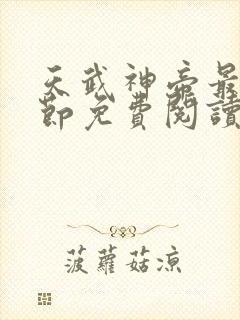 天武神帝最
節免費閱讀
菠蘿菇凉